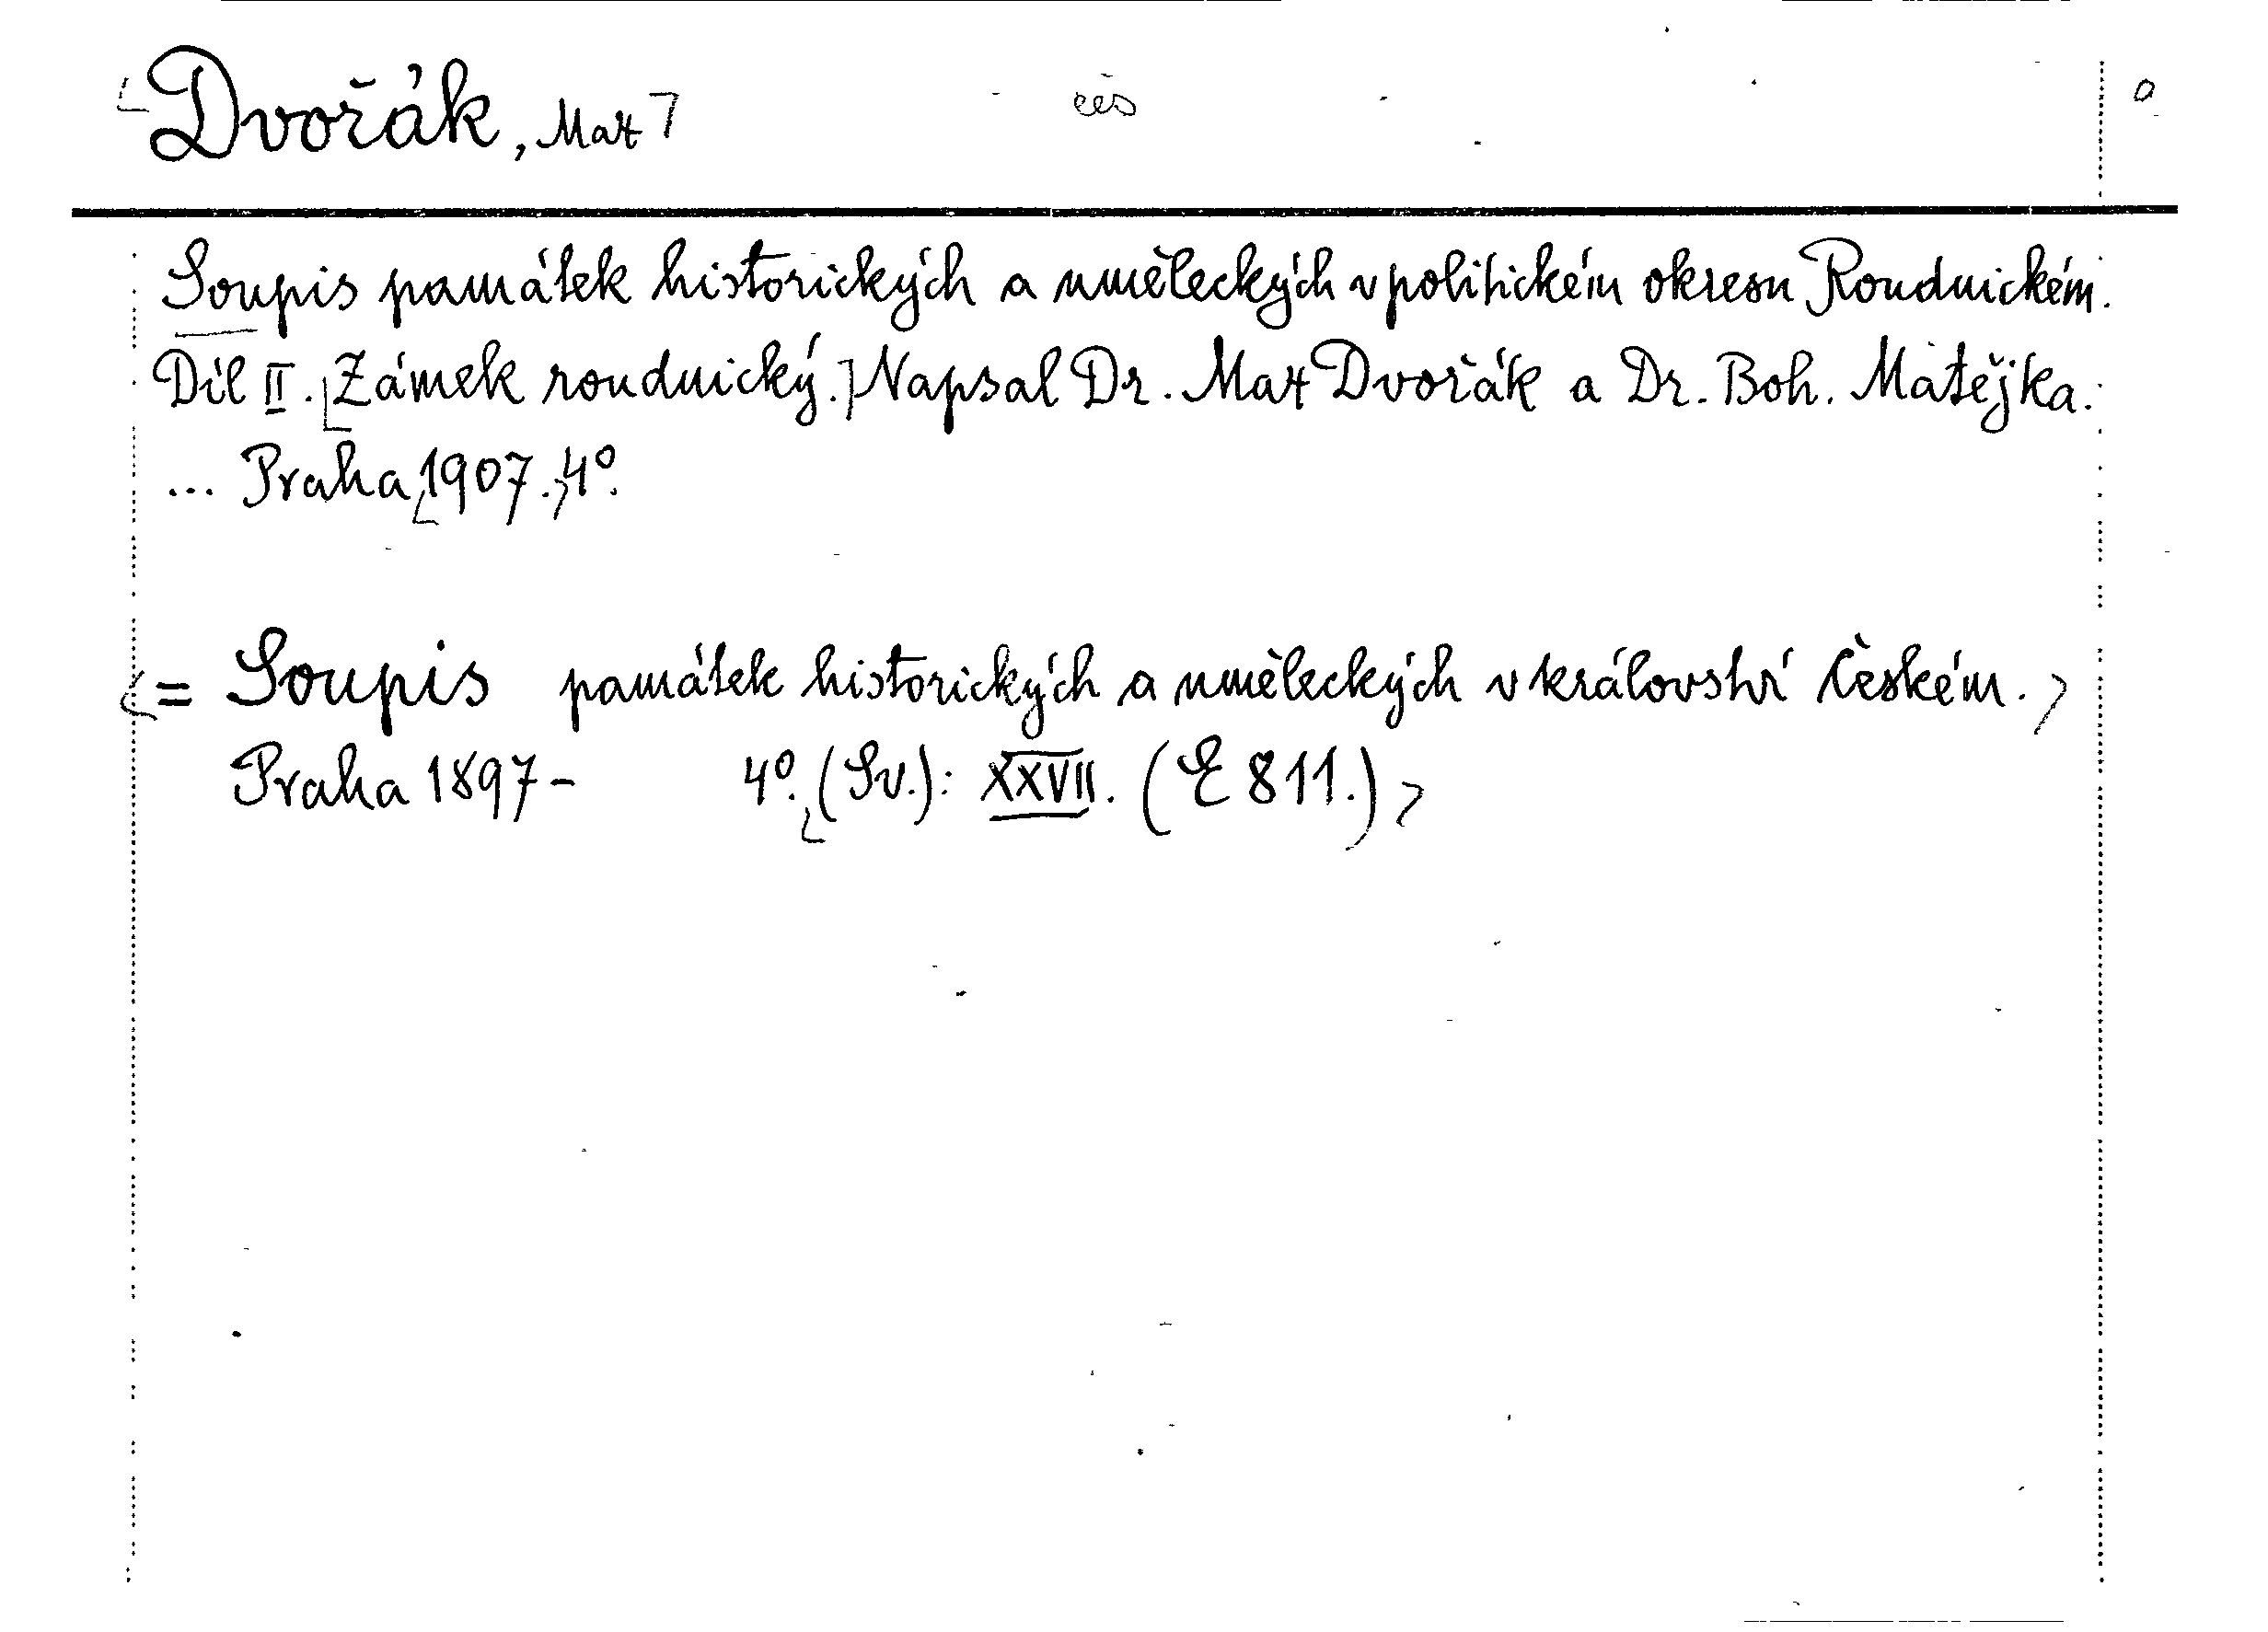 Dvořák, Max čes a
Soupis památek historických a uměleckých v politickém okresu Roudnickém.
Díl II. [Zámek roudnický.] Napsal Dr. Max Dvořák a Dr. Boh. Matějka.
... Praha, 1907. 4°.
= Soupis památek historických a uměleckých v království Českém.
Praha 1897- 4°. (Sv.): XXVII. (E 811.)